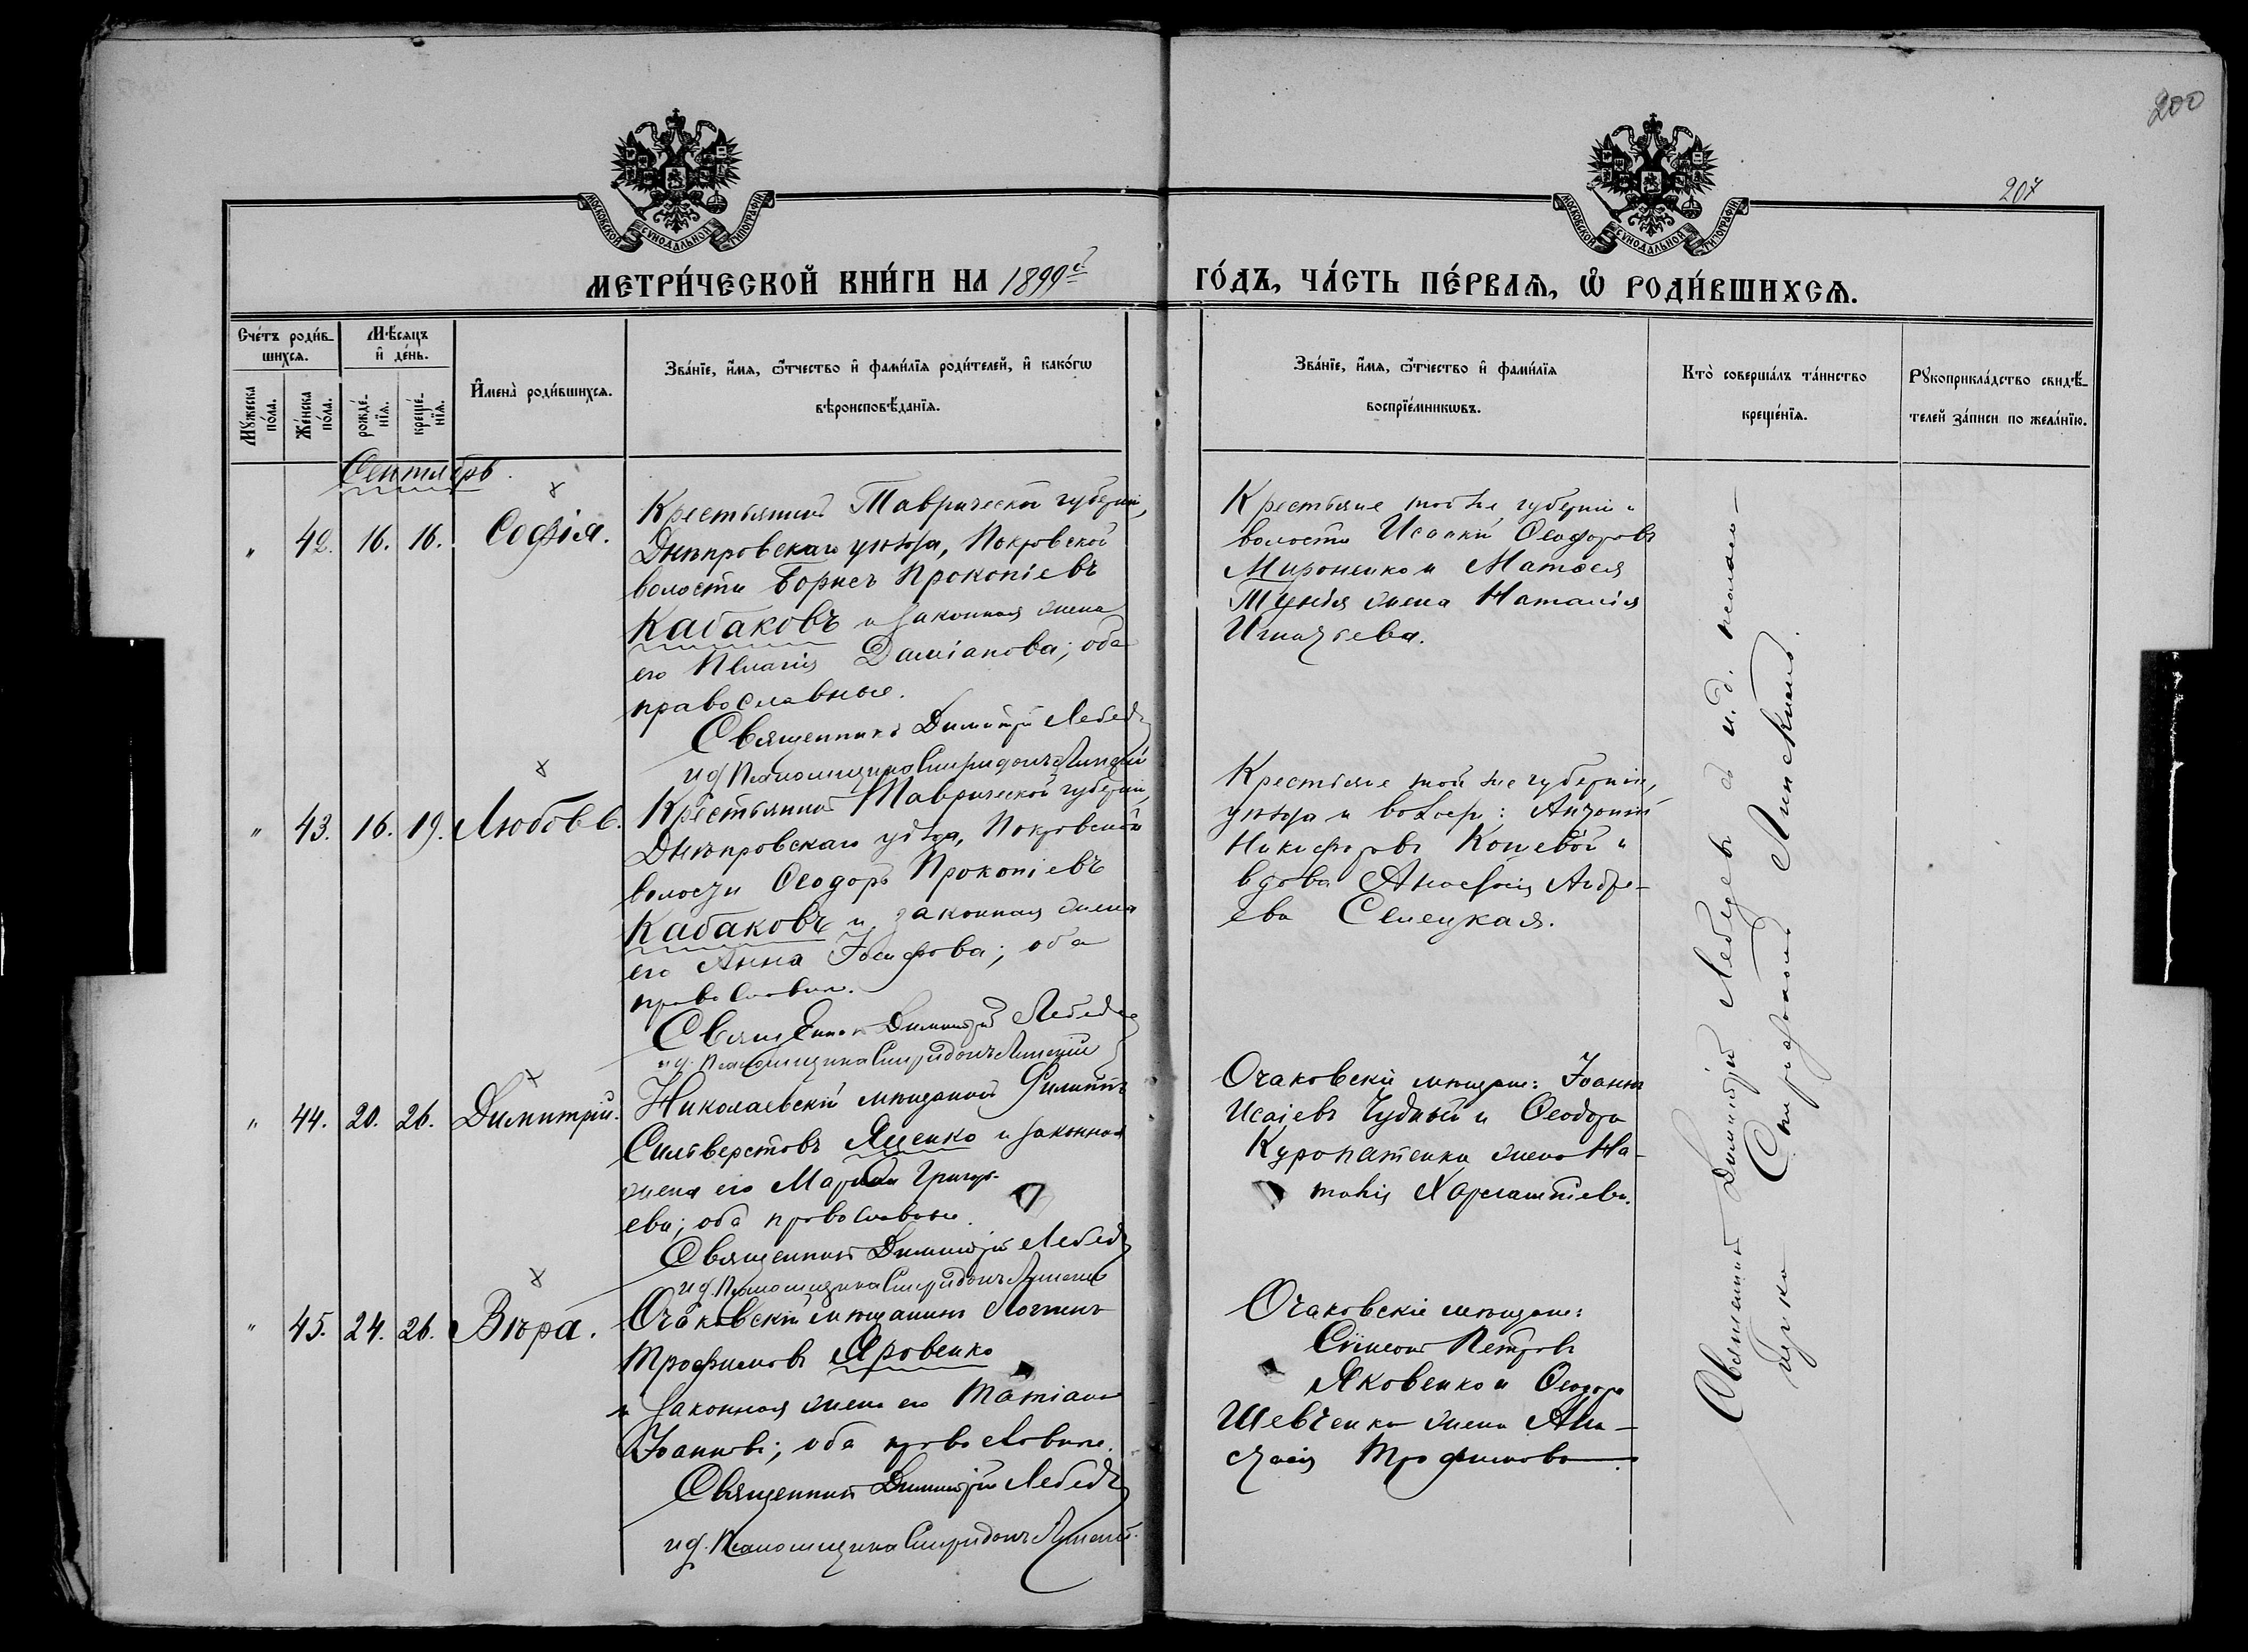 200
207
МОСКОВСКОЙ СѴНОДАЛЬНОЙ ТИПОГРАФІИ
МОСКОВСКОЙ СѴНОДАЛЬНОЙ ТИПОГРАФІИ
МЕТРИ́ЧЕСКОЙ КНИ́ГИ НА 1899й
ГО́ДЪ, ЧА́СТЬ ПЕ́РВАѦ, Ѡ҆ РОДИ́ВШИХСѦ.
Сче́тъ роди́в-
шихсѧ.
Мѣ́сѧцъ
и҆ де́нь.
Мꙋ́жеска
по́ла.
Же́нска
по́ла.
рожде́-
нїѧ.
креще́-
нїѧ.
И҆мена̀ роди́вшихсѧ.
Зва́нїе, и҆́мѧ, ѻ҆́тчество и҆ фами́лїѧ роди́телей, и҆ како́гѡ
вѣроисповѣ́данїѧ.
Зва́нїе, и҆́мѧ, ѻ҆́тчество и҆ фами́лїѧ
воспрїе́мникѡвъ.
Кто̀ соверша́лъ та́инство
креще́нїѧ.
Рꙋкоприкла́дство свидѣ́-
телей за́писи по жела́нїю.
Сентябрь
" 42. 16. 16. Софія.
Крестьянинъ Таврической губерніи,
Днѣпровскаго уѣзда, Покровской
волости Борисъ Прокопіевъ
Кабаковъ и законная жена
его Пелагія Даміанова; оба
православные.
Священникъ Димитрій Лебедевъ
и д Псаломщика Спиридонъ Липскій
Крестьяне той же губерніи и
волости Исаакій Ѳеодоровъ
Мироненко и Матѳея
жена Наталія
Игнатьева.
" 43. 16. 19. Любовь.
Крестьянинъ Таврической губерніи,
Днѣпровскаго уѣзда, Покровской
волости Ѳеодоръ Прокопіевъ
Кабаковъ и законная жена
его Анна Іосифова; оба
православные.
Священникъ Димитрій Лебедевъ
и д. Псаломщика Спиридонъ Липскій
Крестьяне той же губерніи,
уѣзда и волости: Антоній
Никифоровъ Кошевой и
вдова Анастасія Андре-
ева Селецкая.
" 44. 20. 26. Димитрій.
Николаевскій мѣщанинъ Филиппъ
Сильверстовъ Яценко и законная
жена его Марія Григорь-
ева; оба православные.
Священникъ Димитрій Лебедевъ
и д. Псаломщика Спиридонъ Липскій
Очаковскіе мѣщане: Іоаннъ
Исаіевъ Чудный и Ѳеодора
Куропатенки жена На-
талія Харлампіева.
" 45. 24. 26. Вѣра.
Очаковскій мѣщанинъ Логгинъ
Трофимовъ Яровенко
и законная жена его Татіана
Іоаннова; оба православные.
Священникъ Димитрій Лебедевъ
и д. Псаломщика Спиридонъ Липскій.
Очаковскіе мѣщане:
Симеонъ Петровъ
Яковенко и Ѳеодора
Шевченка жена Ана-
стасія Трофимова.
Священникъ Димитрій Лебедевъ съ и. д. псалом-
щика Спиридономъ Липскимъ.